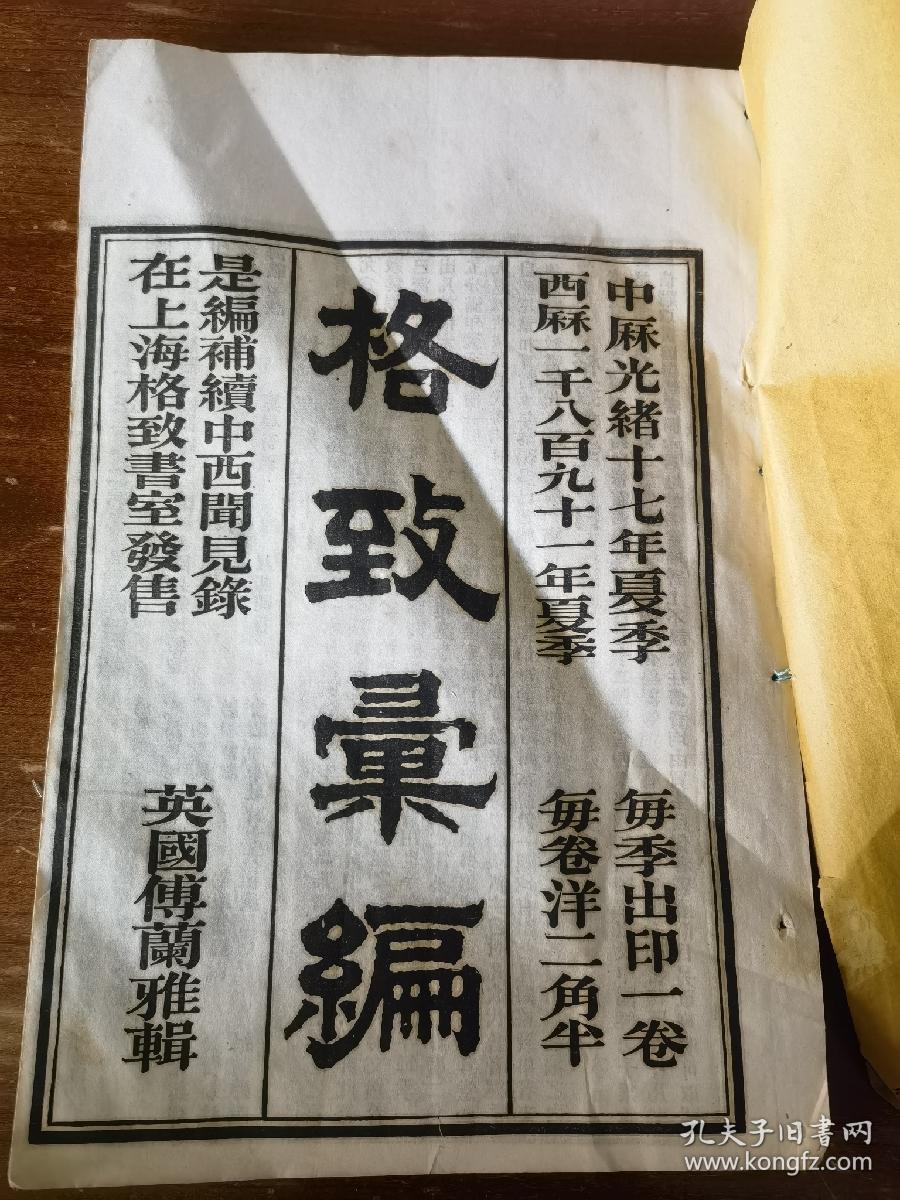 中厤光緒十七年夏季
每季出印一卷
西厤一千八百九十一年夏季
每卷洋二角半
格致彙編
是編補續中西聞見錄
在上海格致書室發售
英國傅蘭雅輯
孔夫子旧書网
www.kongfz.com